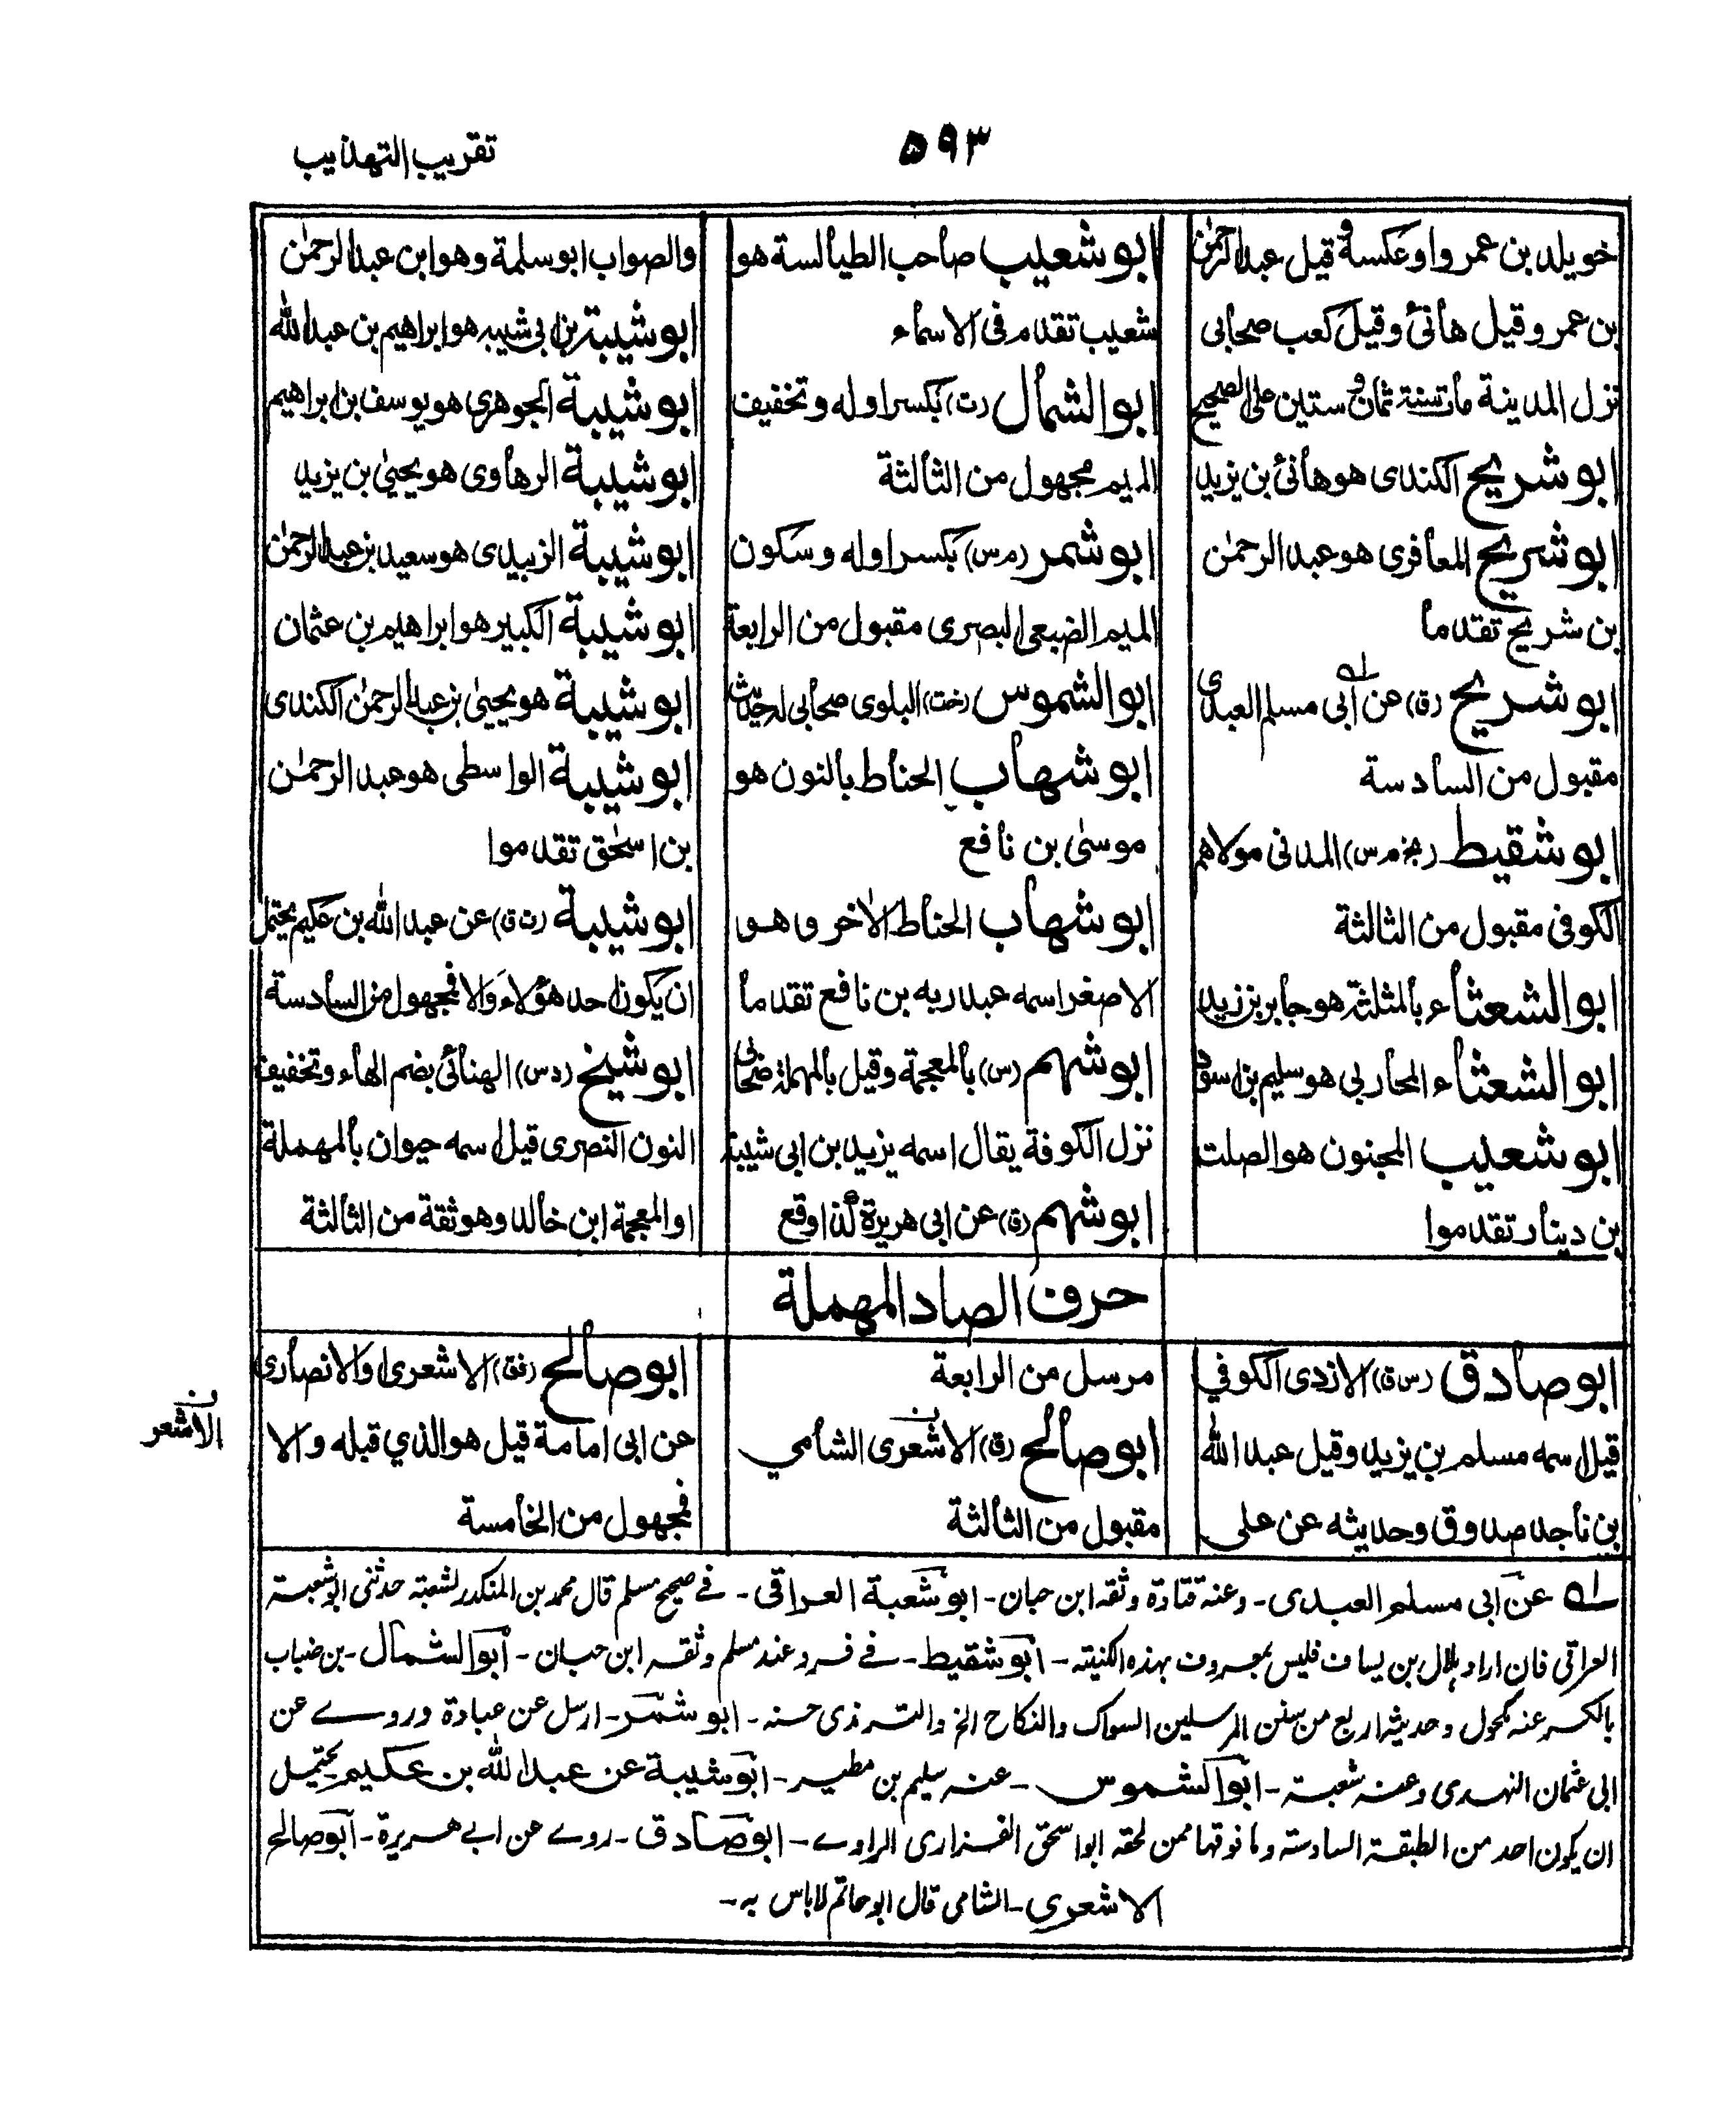 تقريب التهذيب
٥٩٣
خويلد بن عمرو او عكسه و قيل عبد الرحمٰن
بن عمرو قيل هانئ وقيل كعب صحابى
نزل المدينة مات سنة ثمان و ستين على الصحيح
ابو شريح الكندى هو هانئ بن يزيد
ابو شريح المعافرى هو عبد الرحمٰن
بن شريح تقدما
ابو شريح (ق) عن ابى مسلم العبدى
مقبول من السادسة
ابو شقيط (بخ م س) المدنى مولاهم
الكوفى مقبول من الثالثة
ابو الشعثاء بالمثلثة هو جابر بن زيد
ابو الشعثاء المحاربى هو سليم بن اسود
ابو شعيب المجنون هو الصلت
بن دينار تقدموا
ابو شعيب صاحب الطيالسة هو
شعيب تقدم فى الاسماء
ابو الشمال (ت) بكسر اوله و تخفيف
الميم مجهول من الثالثة
ابو شمر (م س) بكسر اوله و سكون
الميم الضبعى البصرى مقبول من الرابعة
ابو الشموس (خت) البلوى صحابى له حديث
ابو شهاب الحناط بالنون هو
موسىٰ بن نافع
ابو شهاب الحناط الاٰخر و هو
الاصغر اسمه عبد ربه بن نافع تقدما
ابو شهم (س) بالمعجمة وقيل بالمهملة صحابى
نزل الكوفة يقال اسمه يزيد بن ابى شيبة
ابو شهم (ق) عن ابى هريرة كذا وقع
والصواب ابو سلمة وهو ابن عبد الرحمٰن
ابو شيبة بن ابى شيبه هو ابراهيم بن عبد الله
ابو شيبة الجوهرى هو يوسف بن ابراهيم
ابو شيبة الرهاوى هو يحيىٰ بن يزيد
ابو شيبة الزبيدى هو سعيد بن عبد الرحمٰن
ابو شيبة الكبير هو ابراهيم بن عثمان
ابو شيبة هو يحيىٰ بن عبد الرحمٰن الكندى
ابو شيبة الواسطى هو عبد الرحمٰن
بن اسحٰق تقدموا
ابو شيبة (ت ق) عن عبد الله بن عكيم يحتمل
ان يكون احد هؤلاء والا فمجهول من السادسة
ابو شيخ (د س) الهنائى بضم الهاء وتخفيف
النون النصرى قيل اسمه حيوان بالمهملة
او المعجمة ابن خالد وهو ثقة من الثالثة
حرف الصاد المهملة
ابو صادق (س ق) الازدى الكوفي
قيل اسمه مسلم بن يزيد وقيل عبد الله
بن ناجد صدوق وحديثه عن على
مرسل من الرابعة
ابو صالح (ق) الاشعرى الشامي
مقبول من الثالثة
ابو صالح (فق) الاشعرى او الانصارى
عن ابى امامة قيل هو الذي قبله والا
فمجهول من الخامسة
ن
الاشعر
له عن ابى مسلم العبدى - وعنه قتادة وثقه ابن حبان - ابو شعبة العراقى - فے صحيح مسلم قال محمد بن المنكدر لشعبة حدثنى ابو شعبة
العراقى فان اراد هلال بن يساف فليس بمعروف بهذه الكنيته - ابو شقيط - فے فرد عند مسلم وثقه ابن حبان - ابو الشمال - بن ضباب
بالكسر عنه مكحول وحديثه اربع من سنن المرسلين السواك والنكاح الخ والترمذى حسنه - ابو شمر - ارسل عن عبادة وروے عن
ابى عثمان النهدى وعنه شعبة - ابو الشموس - عنه سليم بن مطير - ابو شيبة عن عبد الله بن عكيم يحتمل
ان يكون احد من الطبقة السادسة وما فوقها ممن لحقه ابو اسحق الفزارى الراوے - ابو صادق - روے عن ابے هريرة - ابو صالح
الاشعري - الشامى قال ابو حاتم لا باس به -